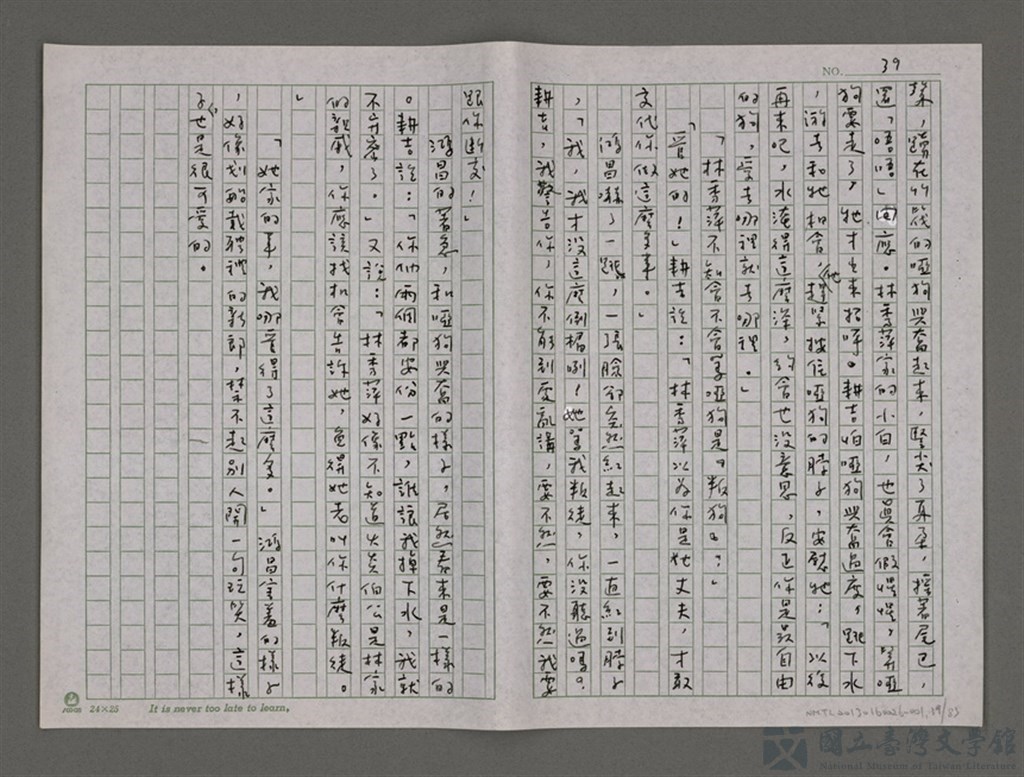 NO. 39
樣，蹲在竹筏的啞狗興奮起來，豎尖了耳朵，搖著尾巴，
還「唔唔」回應。林秀萍家的小白，也真會假惺惺，等啞
狗要走了，牠才出來招呼。耕吉怕啞狗興奮過度，跳下水
，游去和牠相會，他趕緊按住啞狗的脖子，安慰牠：「以後
再來吧，水淹得這麼深，約會也沒意思，反正你是最自由
的狗，愛去哪裡就去哪裡。」
「林秀萍不知會不會罵啞狗是『叛狗』？」
「管她的！」耕吉說：「林秀萍以為你是她丈夫，才敢
交代你做這麼多事。」
鴻昌嚇了一跳，一張臉卻突然紅起來，一直紅到脖子
，「我，我才沒這麼倒楣咧！她罵我叛徒，你沒聽過嗎？
耕吉，我警告你，你不能到處亂講，要不然，要不然我要
跟你斷交！」
鴻昌的著急，和啞狗興奮的樣子，居然看來是一樣的
。耕吉說：「你們兩個都安份一點，誰讓我掉下水，我就
不弁寮了。」又說：「林秀萍好像不知道火炎伯公是林家
的親戚，你應該找機會告訴她，免得她老叫你什麼叛徒。
」
「她家的事，我哪管得了這麼多。」鴻昌害羞的樣子
，好像划船載聘禮的新郎，禁不起別人開一句玩笑，這樣
子也是很可愛的。
24×25 It is never too late to learn.
NMTL20130160026-001.39/85
國立臺灣文學館
National Museum of Taiwan Literature